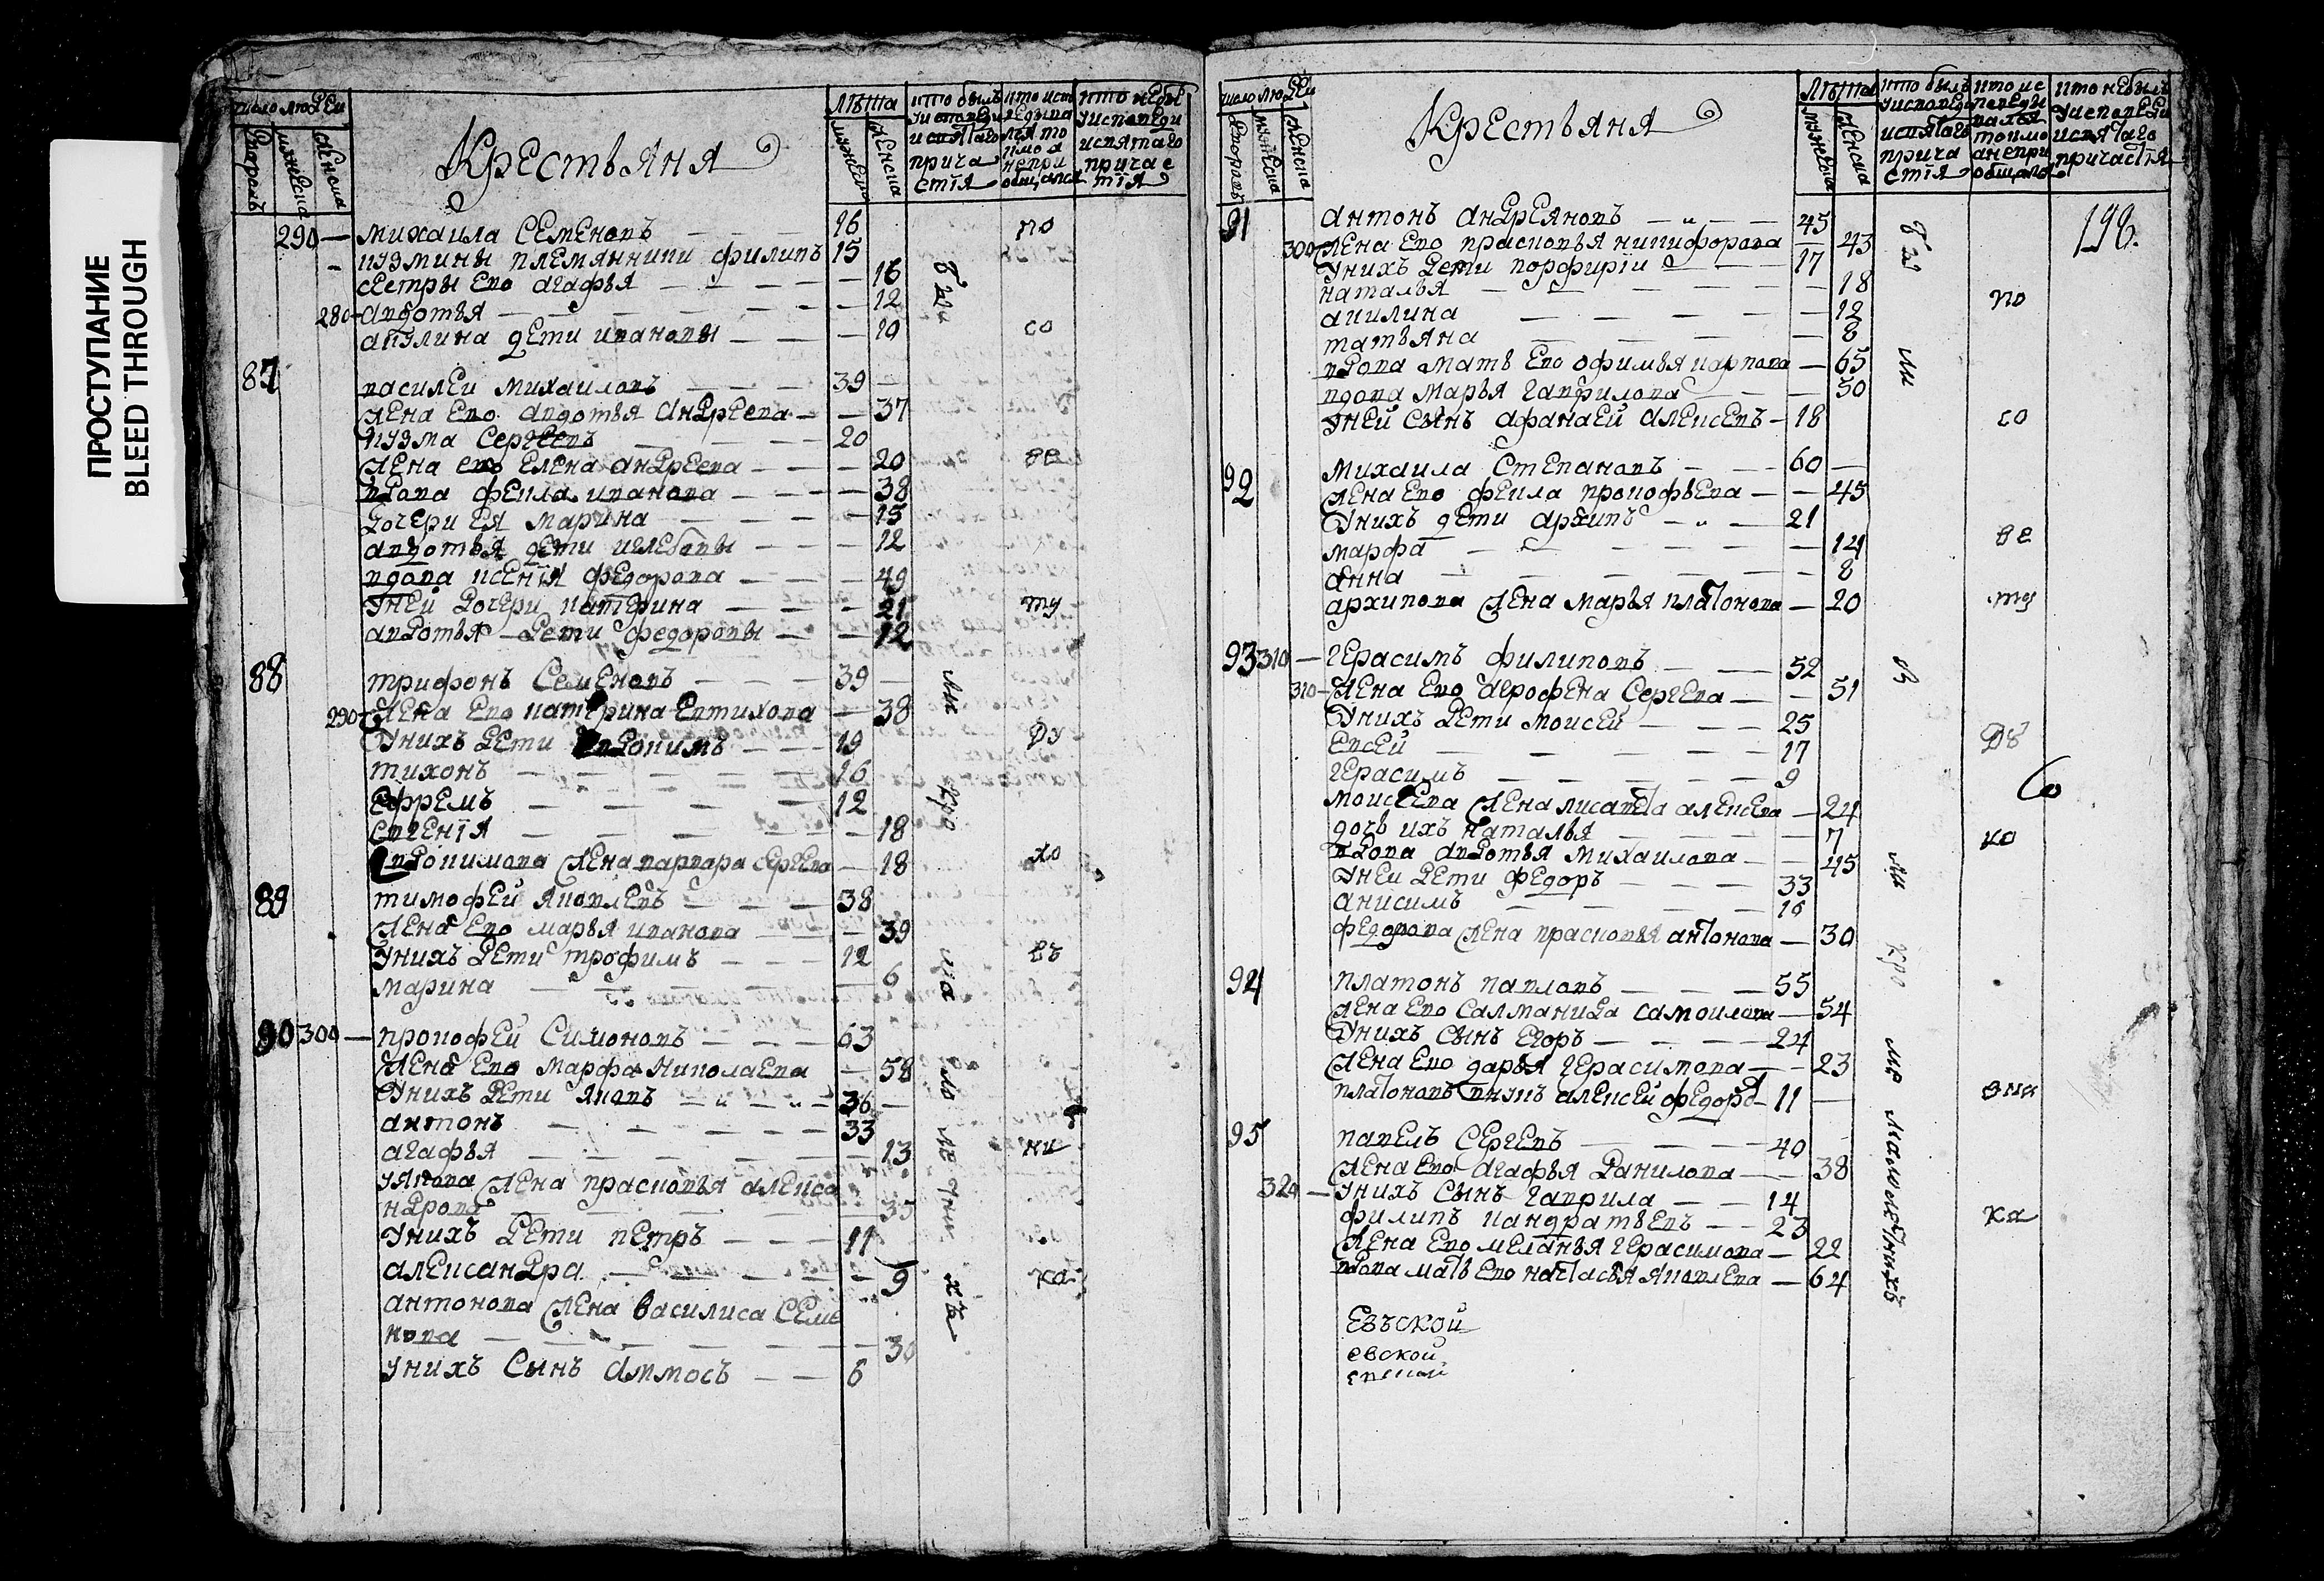 ПРОСТУПАНИЕ
BLEED THROUGH
число людей
лѣта
дворовъ
мужеска
женска
Крестьяня
мужеска
женска
кто былъ
у исповеди
и святаго
прича
стїя
кто исп
ведыва
лся то
кмо а
непри
общался
кто небы
у исповеди
и святаго
причас
тїя
290 — михаила Семеновъ — 16
кузмины племянники филипъ 15
сестры ево агафья — 16
280 — авдотья — 12
акулина дети ивановы — 10
87 василеи михаиловъ — 39
жена ево авдотья андреева — 37
кузма Сергеевъ — 20
жена ево елена андреева — 20
вдова фекла иванова — 38
дочери ея марина — 15
авдотья дети иглебовы — 12
вдова ксенїя федорова — 49
у ней дочери катерина — 21
авдотья — дети федоровы — 12
88 трифонъ Семеновъ — 39
290 — жена ево катерина евтихова — 38
у нихъ дети евдокимъ — 19
тихонъ — 16
ефремъ — 12
евгенїя — 18
евдокимова жена варвара сергева — 18
89 тимофей яковлевъ — 38
жена ево марья иванова — 39
у нихъ дети трофимъ — 12
марина — 6
90 300 — прокофей Симоновъ — 63
жена ево марфа николаева — 58
у нихъ дети яковъ — 36
антонъ — 33
агафья — 13
якова жена прасковья алекса
ндрова — 35
у нихъ дети петръ — 11
александра — 9
антонова жена василиса Семе
нова — 30
у нихъ Сынъ аммосъ — 6
бы
ли
кро
ма
ло
ле
тни
хъ
по
со
ве
ту
ду
хо
въ
ни
ка
число людей
лѣта
дворовъ
мужеска
женска
Крестьяня
мужеска
женска
кто былъ
у исповеди
и святаго
прича
стїя
кто ис
поведы
вался
токмо
а непри
общался
кто небылъ
у исповеди
и святаго
причастїя
198.
91 антонъ андреяновъ — 45
300 жена ево прасковья никифорова — 43
у нихъ дети порфирїи — 17
наталья — 18
акилина — 12
татьяна — 8
вдова мать ево офимья карпова — 65
вдова марья гавфилова — 50
у ней Сынъ афанасей алексевъ — 18
92 михаила Степановъ — 60
жена ево фекла прокофьева — 45
у нихъ дети архипъ — 21
марфа — 14
анна — 8
архипова жена марья платонова — 20
93 310 — герасимъ филиповъ — 52
310 — жена ево агрофена Сергева — 51
у нихъ дети моисей — 25
евсей — 17
герасимъ — 9
моисеева жена лисавета алексева — 24
дочь ихъ наталья — 7
вдова авдотья михаилова — 45
у ней дети федоръ — 33
анисимъ — 16
федорова жена прасковья антонова — 30
94 платонъ павловъ — 55
жена ево салманида самоилова — 54
у нихъ сынъ егоръ — 24
жена ево дарья герасимова — 23
платоновъ внукъ алексей федоро — 11
95 павелъ Сергевъ — 40
жена ево агафья данилова — 38
320 — у нихъ сынъ гаврила — 14
филипъ кандратьевъ — 23
жена ево меланья герасимова — 22
вдова мать ево настасья яковлева — 64
Езъской
евской
бы
ли
ли
кро
мѣ
малолѣтнихъ
по
со
ве
ту
дѣ
ко
вни
ка